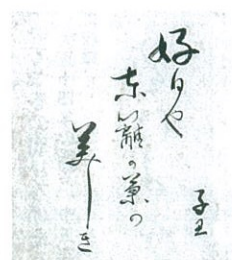 好日や
東籬の菊の
美しき